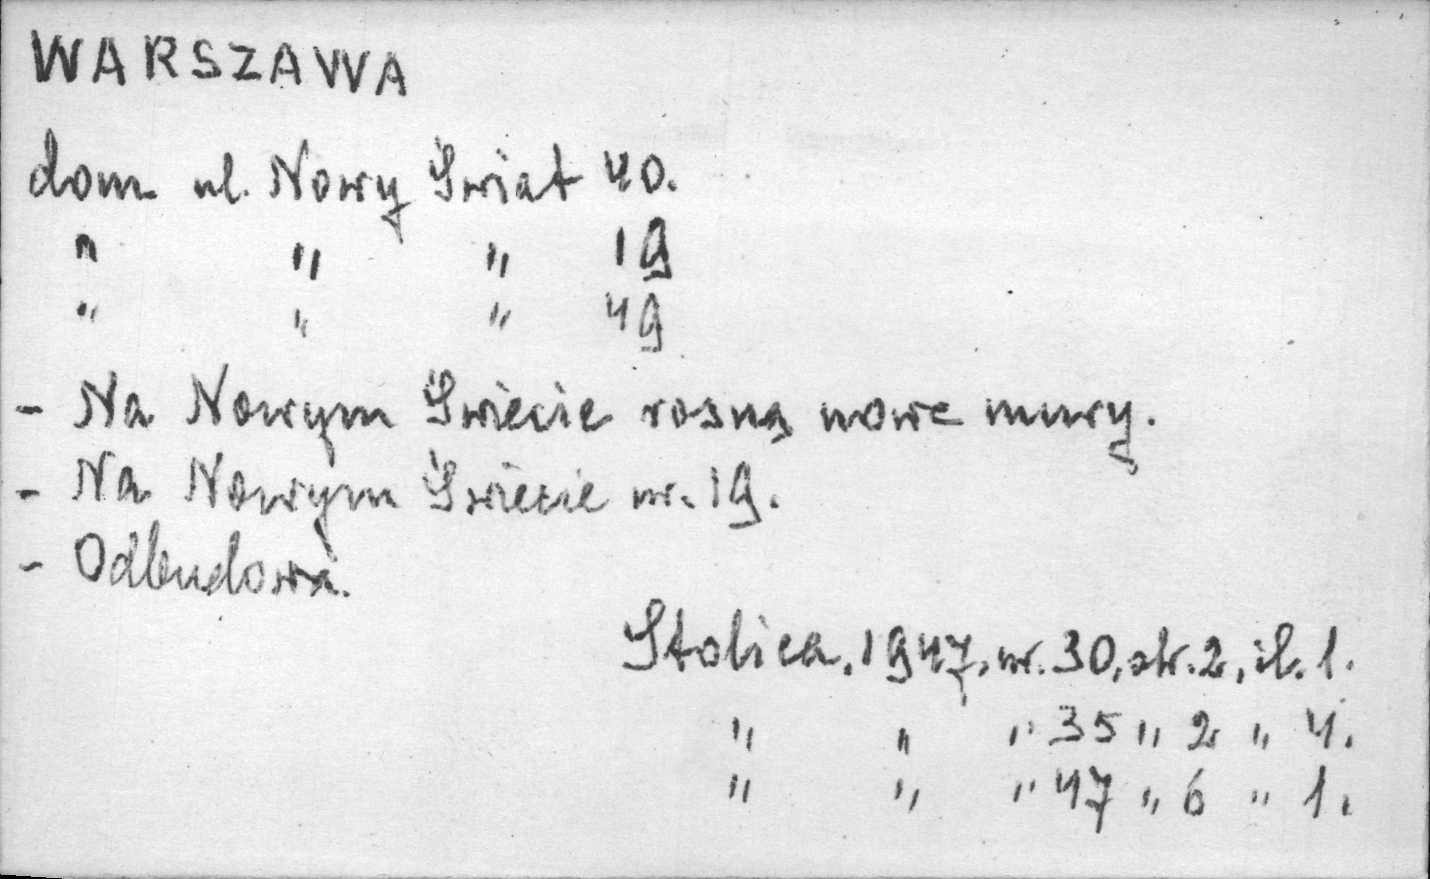 WARSZAWA
dom ul. Nowy Świat 40.
" " " 19
" " " 49
- Na Nowym Świecie rosną nowe mury.
- Na Nowym Świecie nr. 19.
- Odbudowa.
Stolica, 1947, nr. 30, str. 2, il. 1.
" " " 35 " 2 " 4.
" " " 47 " 6 " 1.